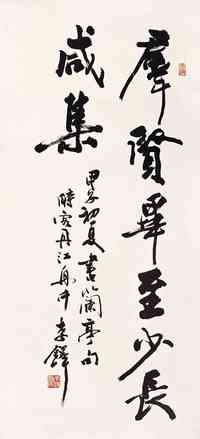 羣贤畢至少長
咸集
甲子初夏書蘭亭句
時客丹江舟中李鐸